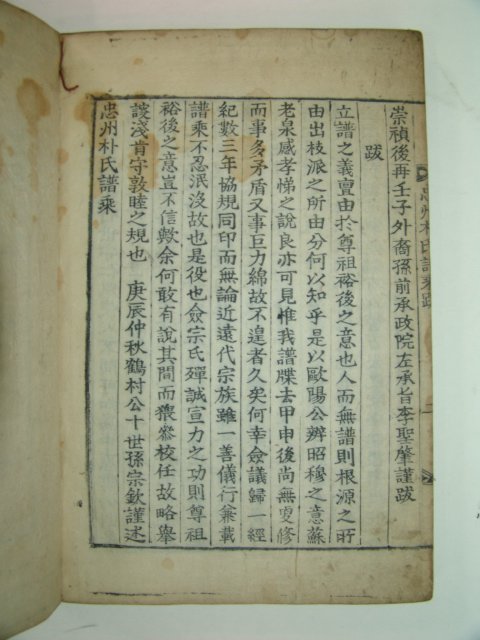 崇禎後再壬子外裔孫前承政院左承旨李聖肇謹跋
跋
立譜之義亶由於尊祖裕後之意也人而無譜則根源之所
由出枝派之所由分何以知乎是以歐陽公辨昭穆之意蘇
老泉感孝悌之說良亦可見惟我譜牒去甲申後尚無更修
而事多矛盾又事巨力綿故不遑者久矣何幸僉議歸一經
紀數三年協規同印而無論近遠代宗族雖一善儀行兼載
譜乘不忍泯沒故也是役也僉宗氏殫誠宣力之功則尊祖
裕後之意豈不信歟余何敢有說其間而猥參校任故略舉
諼淺肯守敦睦之規也 庚辰仲秋鶴村公十世孫宗欽謹述
忠州朴氏譜乘
忠州朴氏譜乘跋